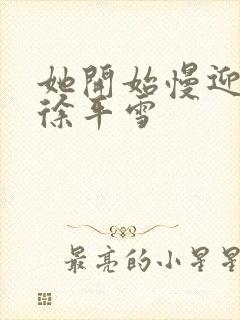 她开始慢迎
徐平雪
最亮的小星星